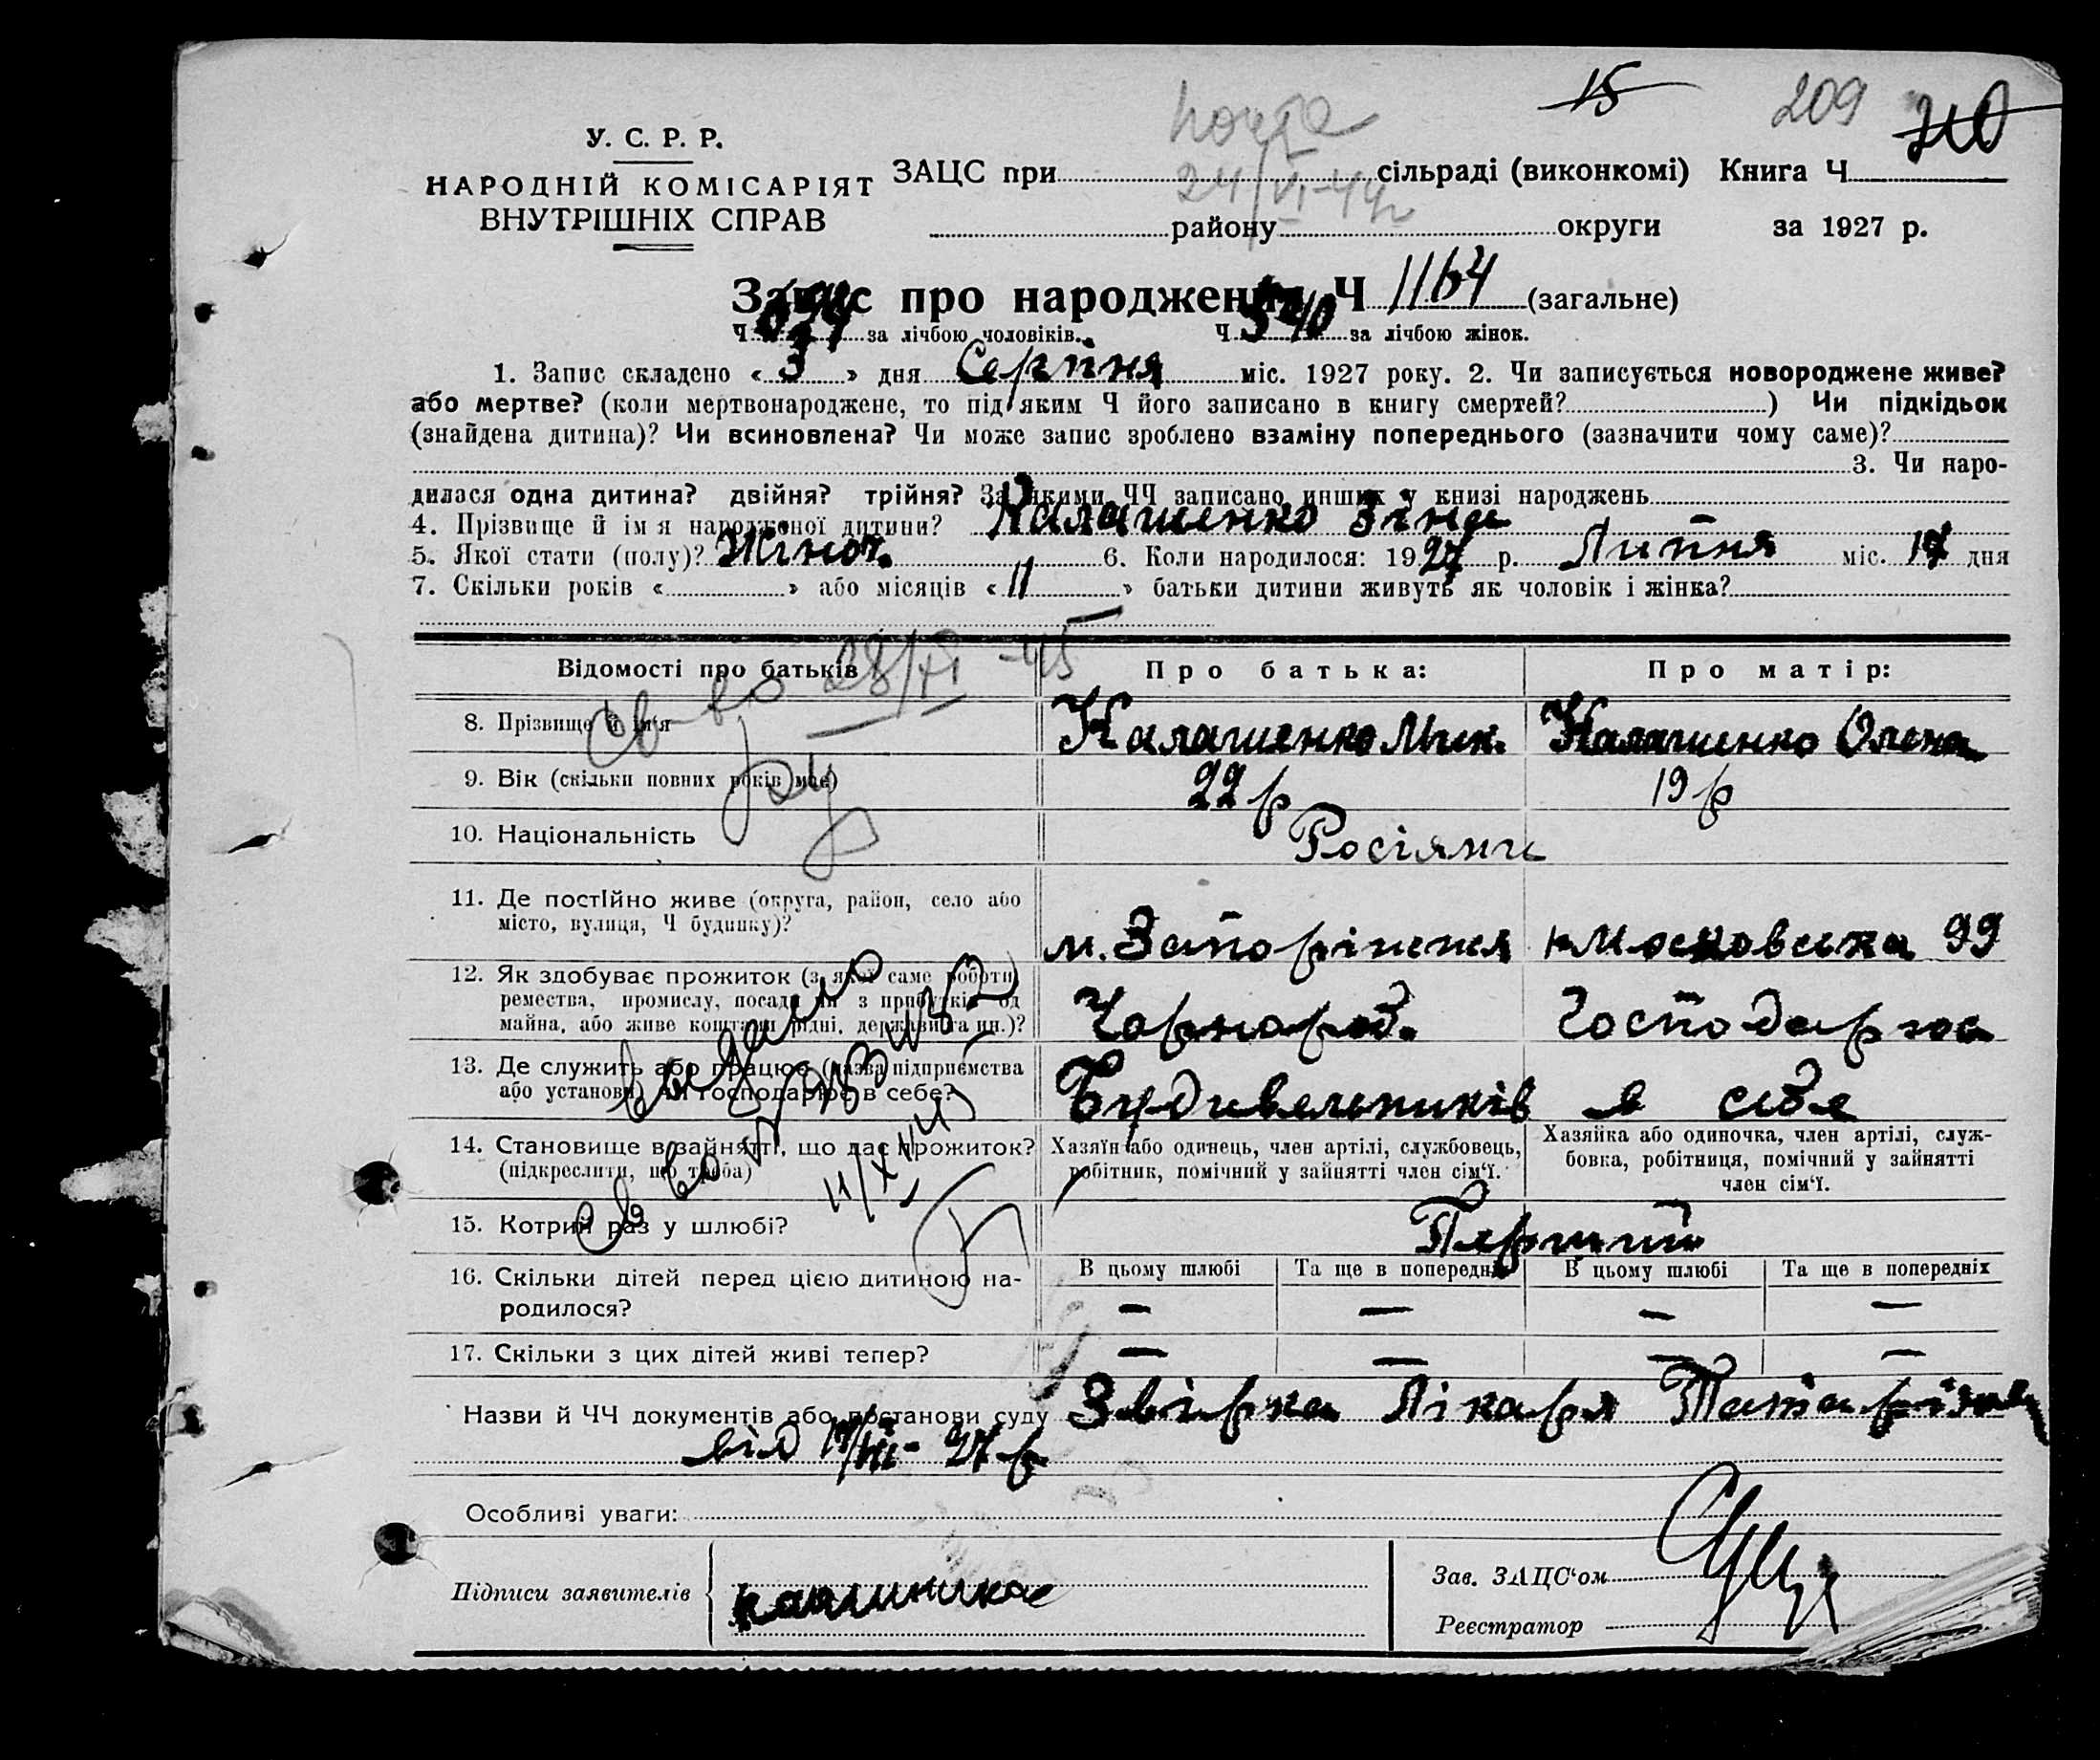 15 209 210
почта
У. С. Р. Р.
НАРОДНІЙ КОМІСАРІЯТ ВНУТРІШНІХ СПРАВ
ЗАЦС при сільраді (виконкомі) Книга Ч
24/VI-44г
району округи за 1927 р.
Запис про народження Ч 1164 (загальне)
Ч 624 за лічбою чоловіків. Ч 540 за лічбою жінок.
1. Запис складено « 3 » дня Серпня міс. 1927 року. 2. Чи записується новороджене живе?
або мертве? (коли мертвонароджене, то під яким Ч його записано в книгу смертей?) Чи підкідьок
(знайдена дитина)? Чи всиновлена? Чи може запис зроблено взаміну попереднього (зазначити чому саме)?
3. Чи наро-
дилася одна дитина? двійня? трійня? За якими ЧЧ записано инших у книзі народжень
4. Прізвище й ім'я народженої дитини? Калашенко Зіна
5. Якої стати (полу)? Жіноч. 6. Коли народилося: 1927 р. Липня міс. 17 дня
7. Скільки років « » або місяців « 11 » батьки дитини живуть як чоловік і жінка?
Відомості про батьків Про батька: Про матір:
Св-во 28/XI -45
8. Прізвище й ім'я Калашенко Мик. Калашенко Олена
9. Вік (скільки повних років має) 22 р 19 р
10. Національність Росіяни
11. Де постійно живе (округа, район, село або
місто, вулиця, Ч будинку)? м. Запоріжжя Московська 99
12. Як здобуває прожиток (з якої саме роботи,
ремества, промислу, посади чи з прибутків од
майна, або живе коштами рідні, держави та ин.)? Чорнороб. Господарює
13. Де служить або працює (назва підприємства
або установи) чи господарює в себе? Будивельників в себе
14. Становище в зайнятті, що дає прожиток?
(підкреслити, що треба)
Хазяїн або одинець, член артілі, службовець,
робітник, помічний у зайнятті член сім'ї.
Хазяйка або одиночка, член артілі, служ-
бовка, робітниця, помічний у зайнятті
член сім'ї.
Выдано
св во
15. Котрий раз у шлюбі? Перший
16. Скільки дітей перед цією дитиною на-
родилося?
В цьому шлюбі Та ще в попередніх В цьому шлюбі Та ще в попередніх
— — — —
17. Скільки з цих дітей живі тепер? — — — —
Назви й ЧЧ документів або постанови суду Звірка Лікаря
від 17/VII- 27 р
Особливі уваги:
Підписи заявителів
Зав. ЗАЦС'ом
Реєстратор